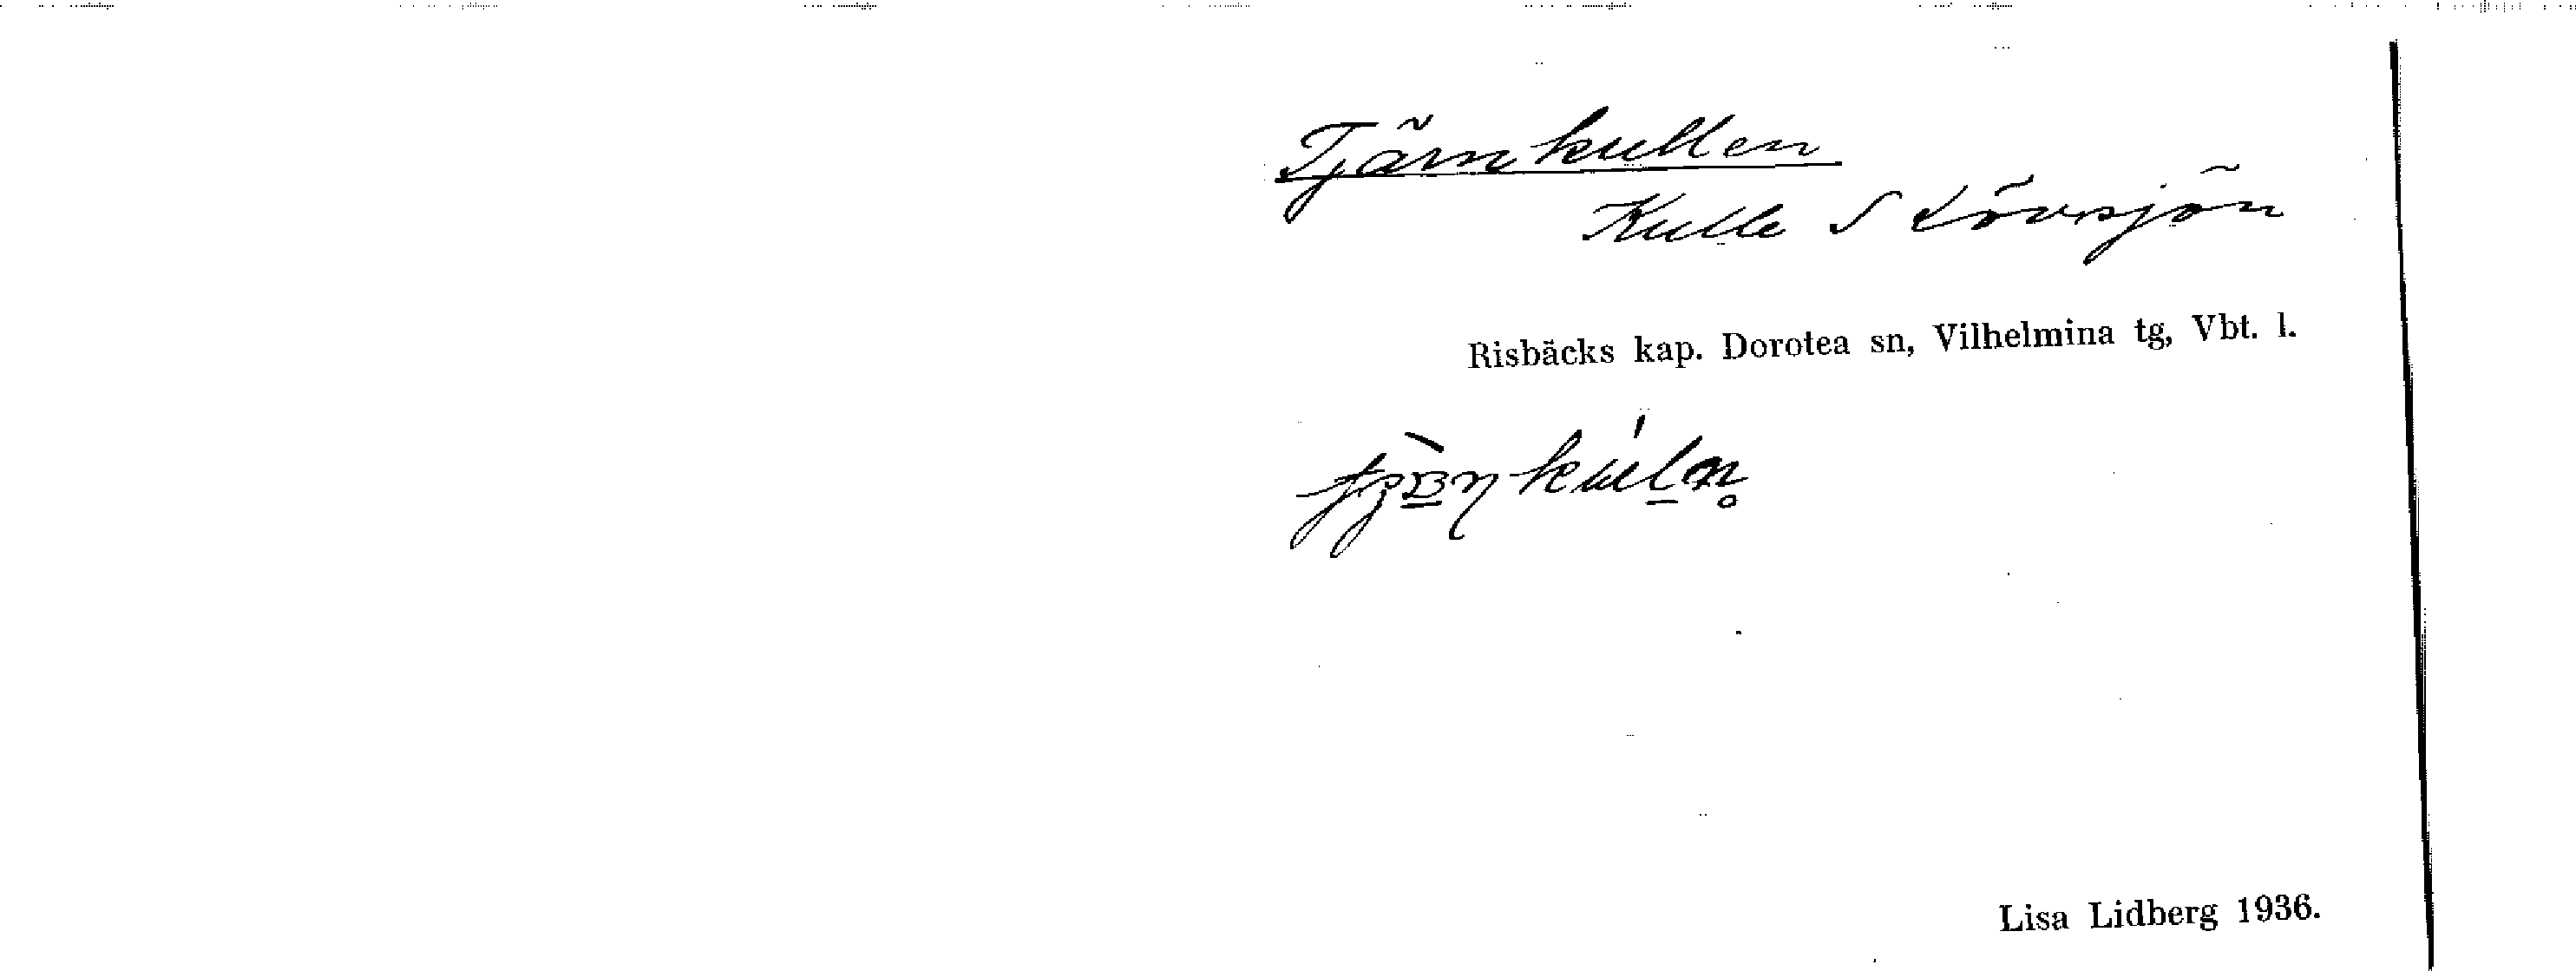 Tjärnkullen
Kulle S Lövsjön
Risbäcks kap. Dorotea sn, Vilhelmina tg, Vbt. l.
Lisa Lidberg 1936.